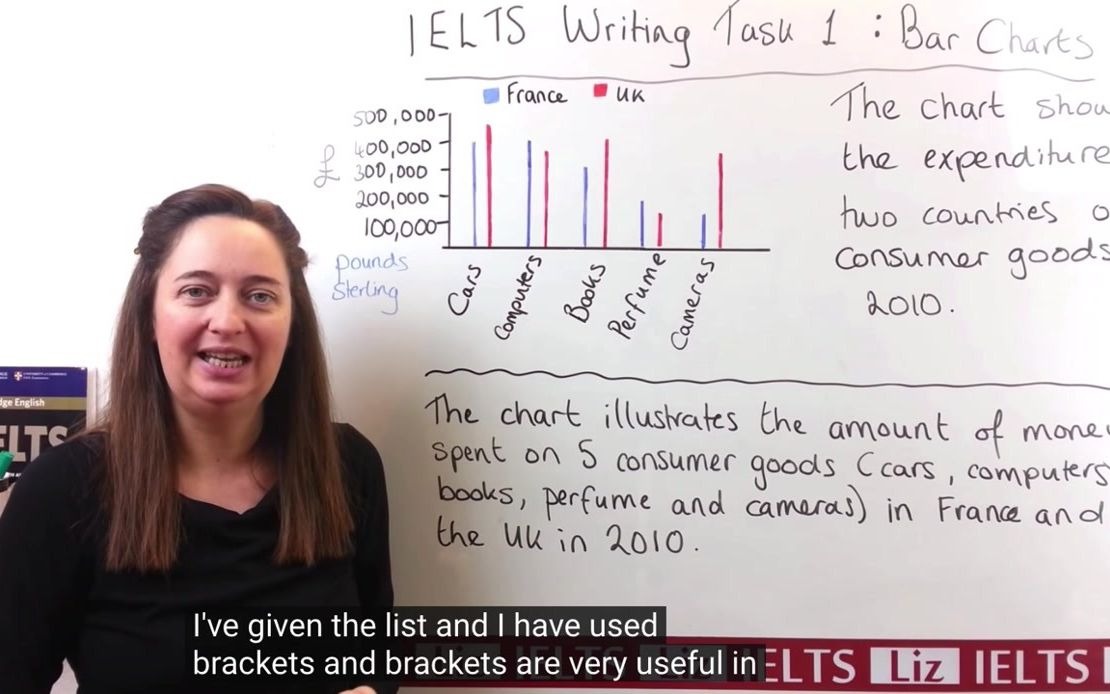 IELTS Writing Task 1 : Bar Charts
France UK
500,000
400,000
£ 300,000
200,000
100,000
Pounds
Sterling
Cars
Computers
Books
Perfume
Cameras
The chart
the expenditure
two countries
consumer goods
2010.
The chart illustrates the amount of
spent on 5 consumer goods (cars, computers
books, perfume and cameras) in France and
the UK in 2010.
English
I've given the list and I have used
brackets and brackets are very useful in
IELTS Liz IELTS